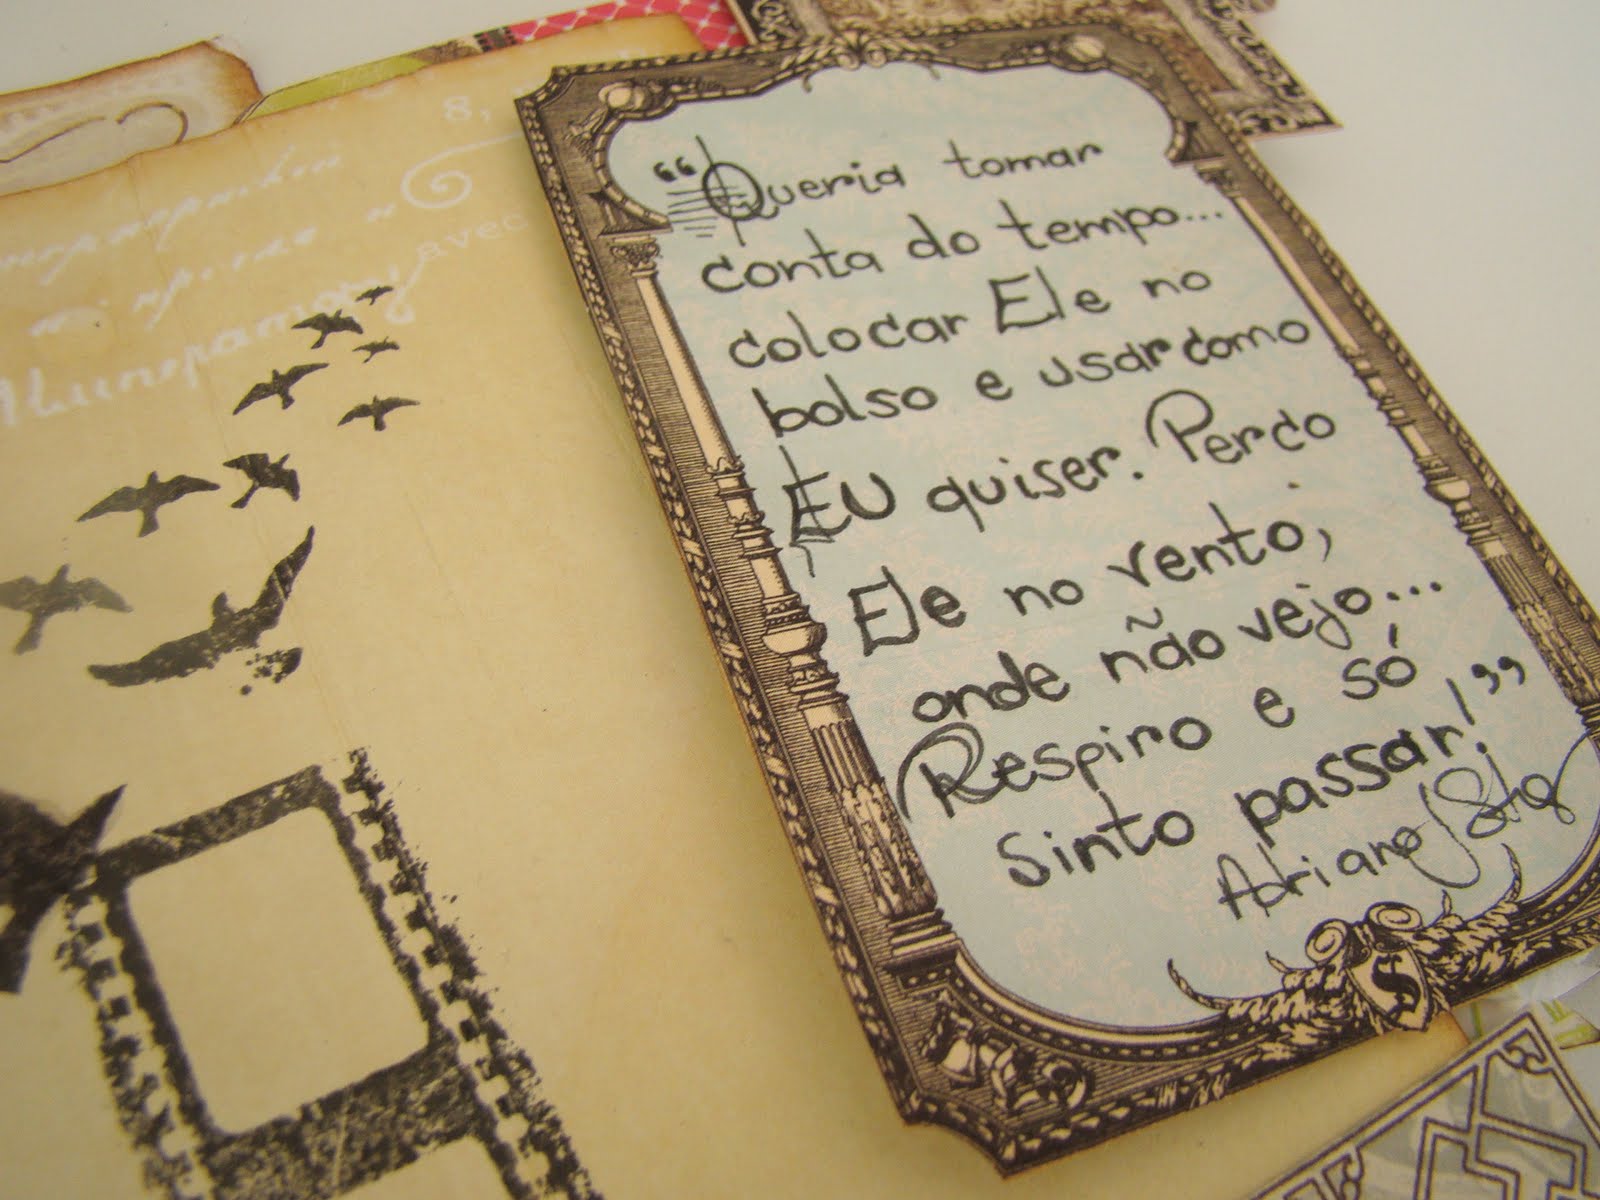 8,
avec
"Queria tomar
conta do tempo...
colocar Ele no
bolso e usar como
EU quiser. Perco
Ele no vento,
onde não vejo...
Respiro e só
sinto passar!"
S